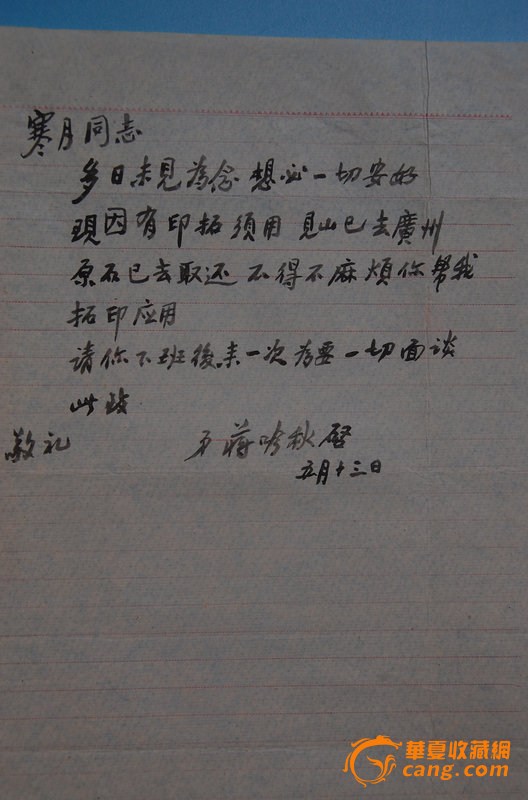 寒月同志
多日未見為念 想必一切安好
現因有印拓須用 見山已去廣州
原石已去取还 不得不麻煩你帮我
拓印应用
请你下班後来一次为要 一切面谈
此致
敬礼 弟蒋吟秋啓
五月十三日
華夏收藏網
cang.com